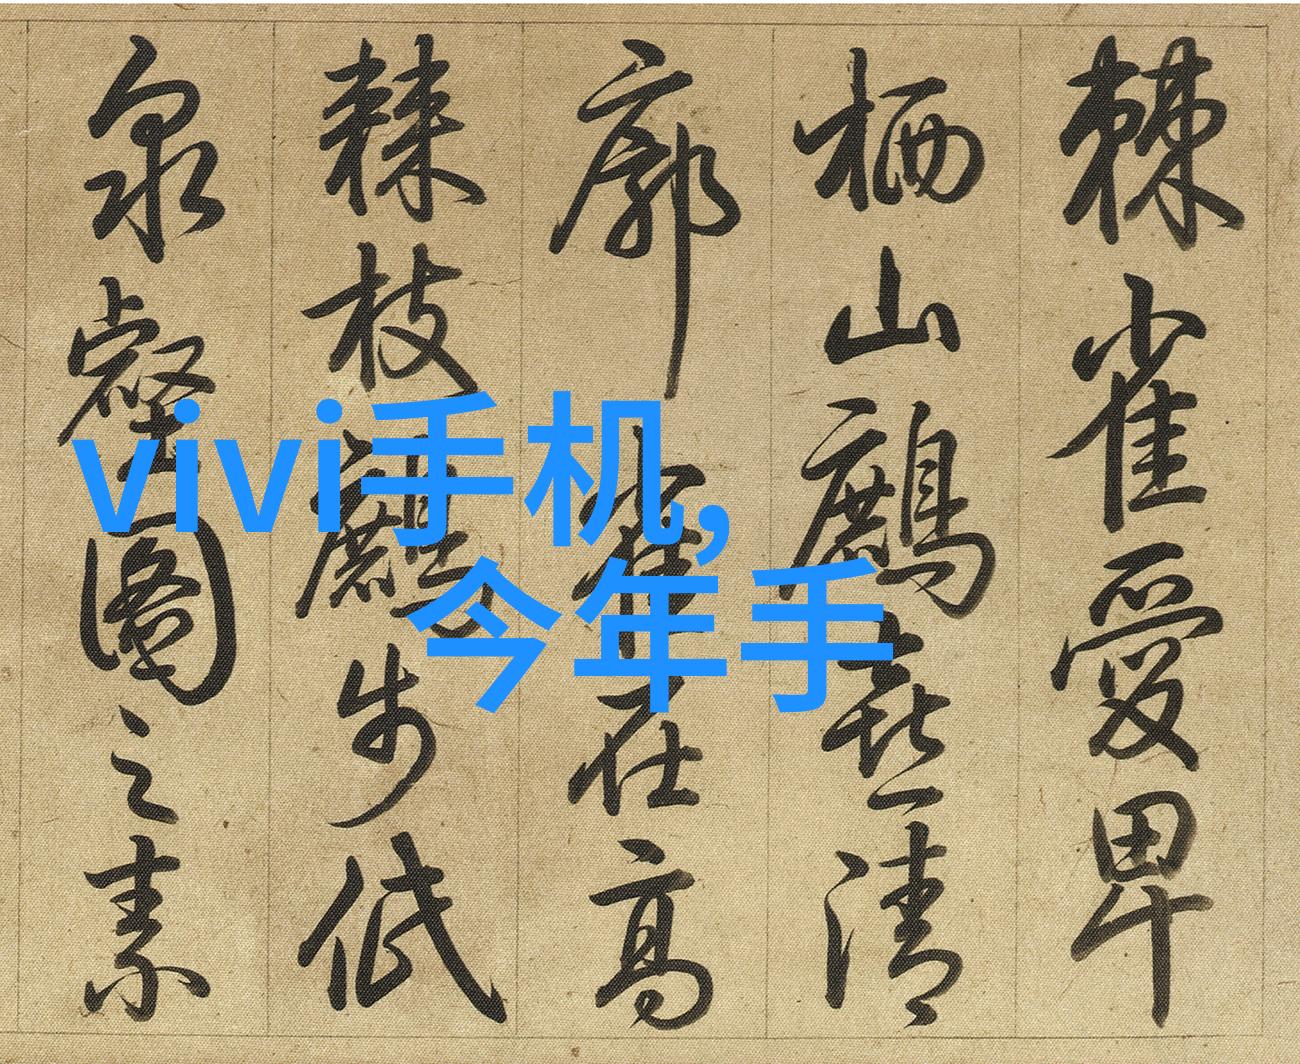 棘雀愛卑
栖山鷓喜清
廓在高
棘枝步低
泉壑圖之素
vivi手机,
今年手